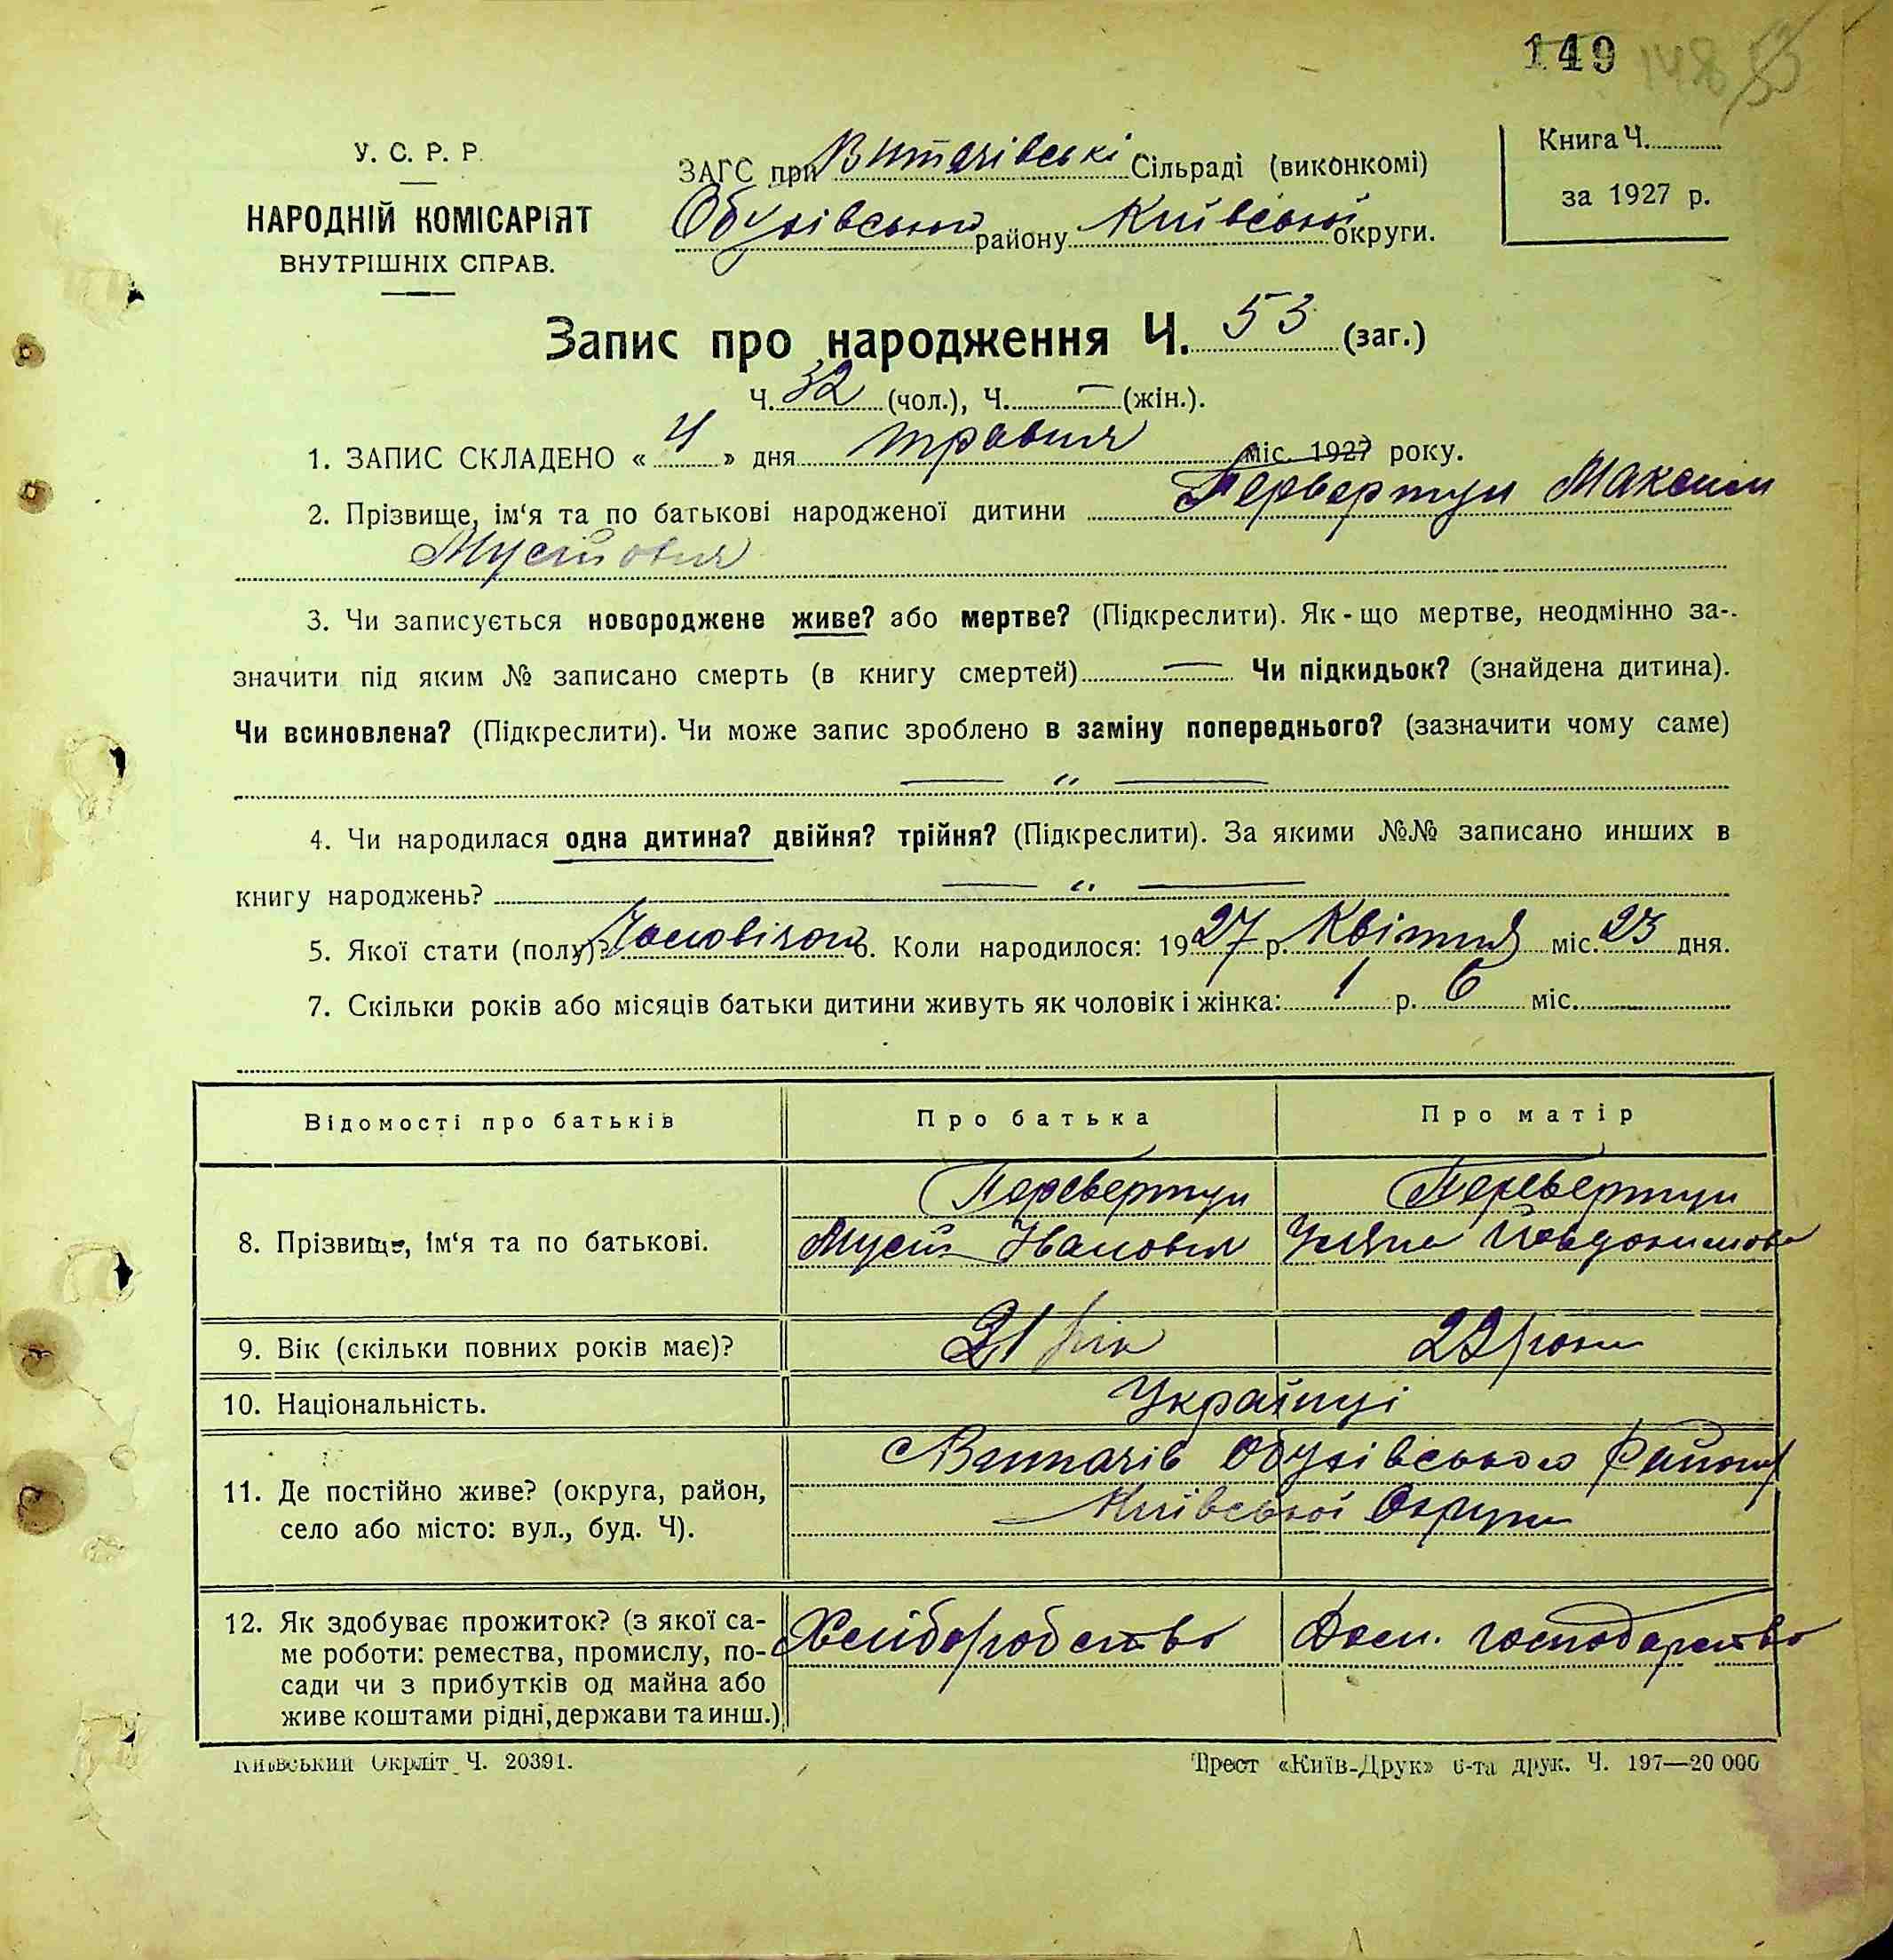 149 148 53
У. С. Р. Р.
НАРОДНІЙ КОМІСАРІЯТ
ВНУТРІШНІХ СПРАВ.
ЗАГС при Витачівські Сільраді (виконкомі)
Обухівського району Київської округи.
Книга Ч.
за 1927 р.
Запис про народження Ч. 53 (заг.)
Ч. 32 (чол.), Ч. — (жін.).
1. ЗАПИС СКЛАДЕНО « 4 » дня травня міс. 1927 року.
2. Прізвище, ім‘я та по батькові народженої дитини Первертун Максим
Мусійович
3. Чи записується новороджене живе? або мертве? (Підкреслити). Як-що мертве, неодмінно за-
значити під яким № записано смерть (в книгу смертей) — Чи підкидьок? (знайдена дитина).
Чи всиновлена? (Підкреслити). Чи може запис зроблено в заміну попереднього? (зазначити чому саме)
— " —
4. Чи народилася одна дитина? двійня? трійня? (Підкреслити). За якими №№ записано инших в
книгу народжень? — " —
5. Якої стати (полу)? Чоловічої 6. Коли народилося: 1927 р. Квітня міс. 23 дня.
7. Скільки років або місяців батьки дитини живуть як чоловік і жінка: 1 р. 6 міс.
Відомості про батьків Про батька Про матір
8. Прізвище, ім‘я та по батькові.
Перевертун
Мусій Іванович
Перевертун
Уляна Йевдокимова
9. Вік (скільки повних років має)? 21 рік 22 роки
10. Національність. Українці
11. Де постійно живе? (округа, район,
село або місто: вул., буд. Ч).
с Витачів Обухівського Району
Київської Округи
12. Як здобуває прожиток? (з якої са-
ме роботи: ремества, промислу, по-
сади чи з прибутків од майна або
живе коштами рідні, держави та инш.)
Хліборобство Дом. господарство
Київський Окрліт Ч. 20391.
Трест «Київ-Друк» 6-та друк. Ч. 197—20 000